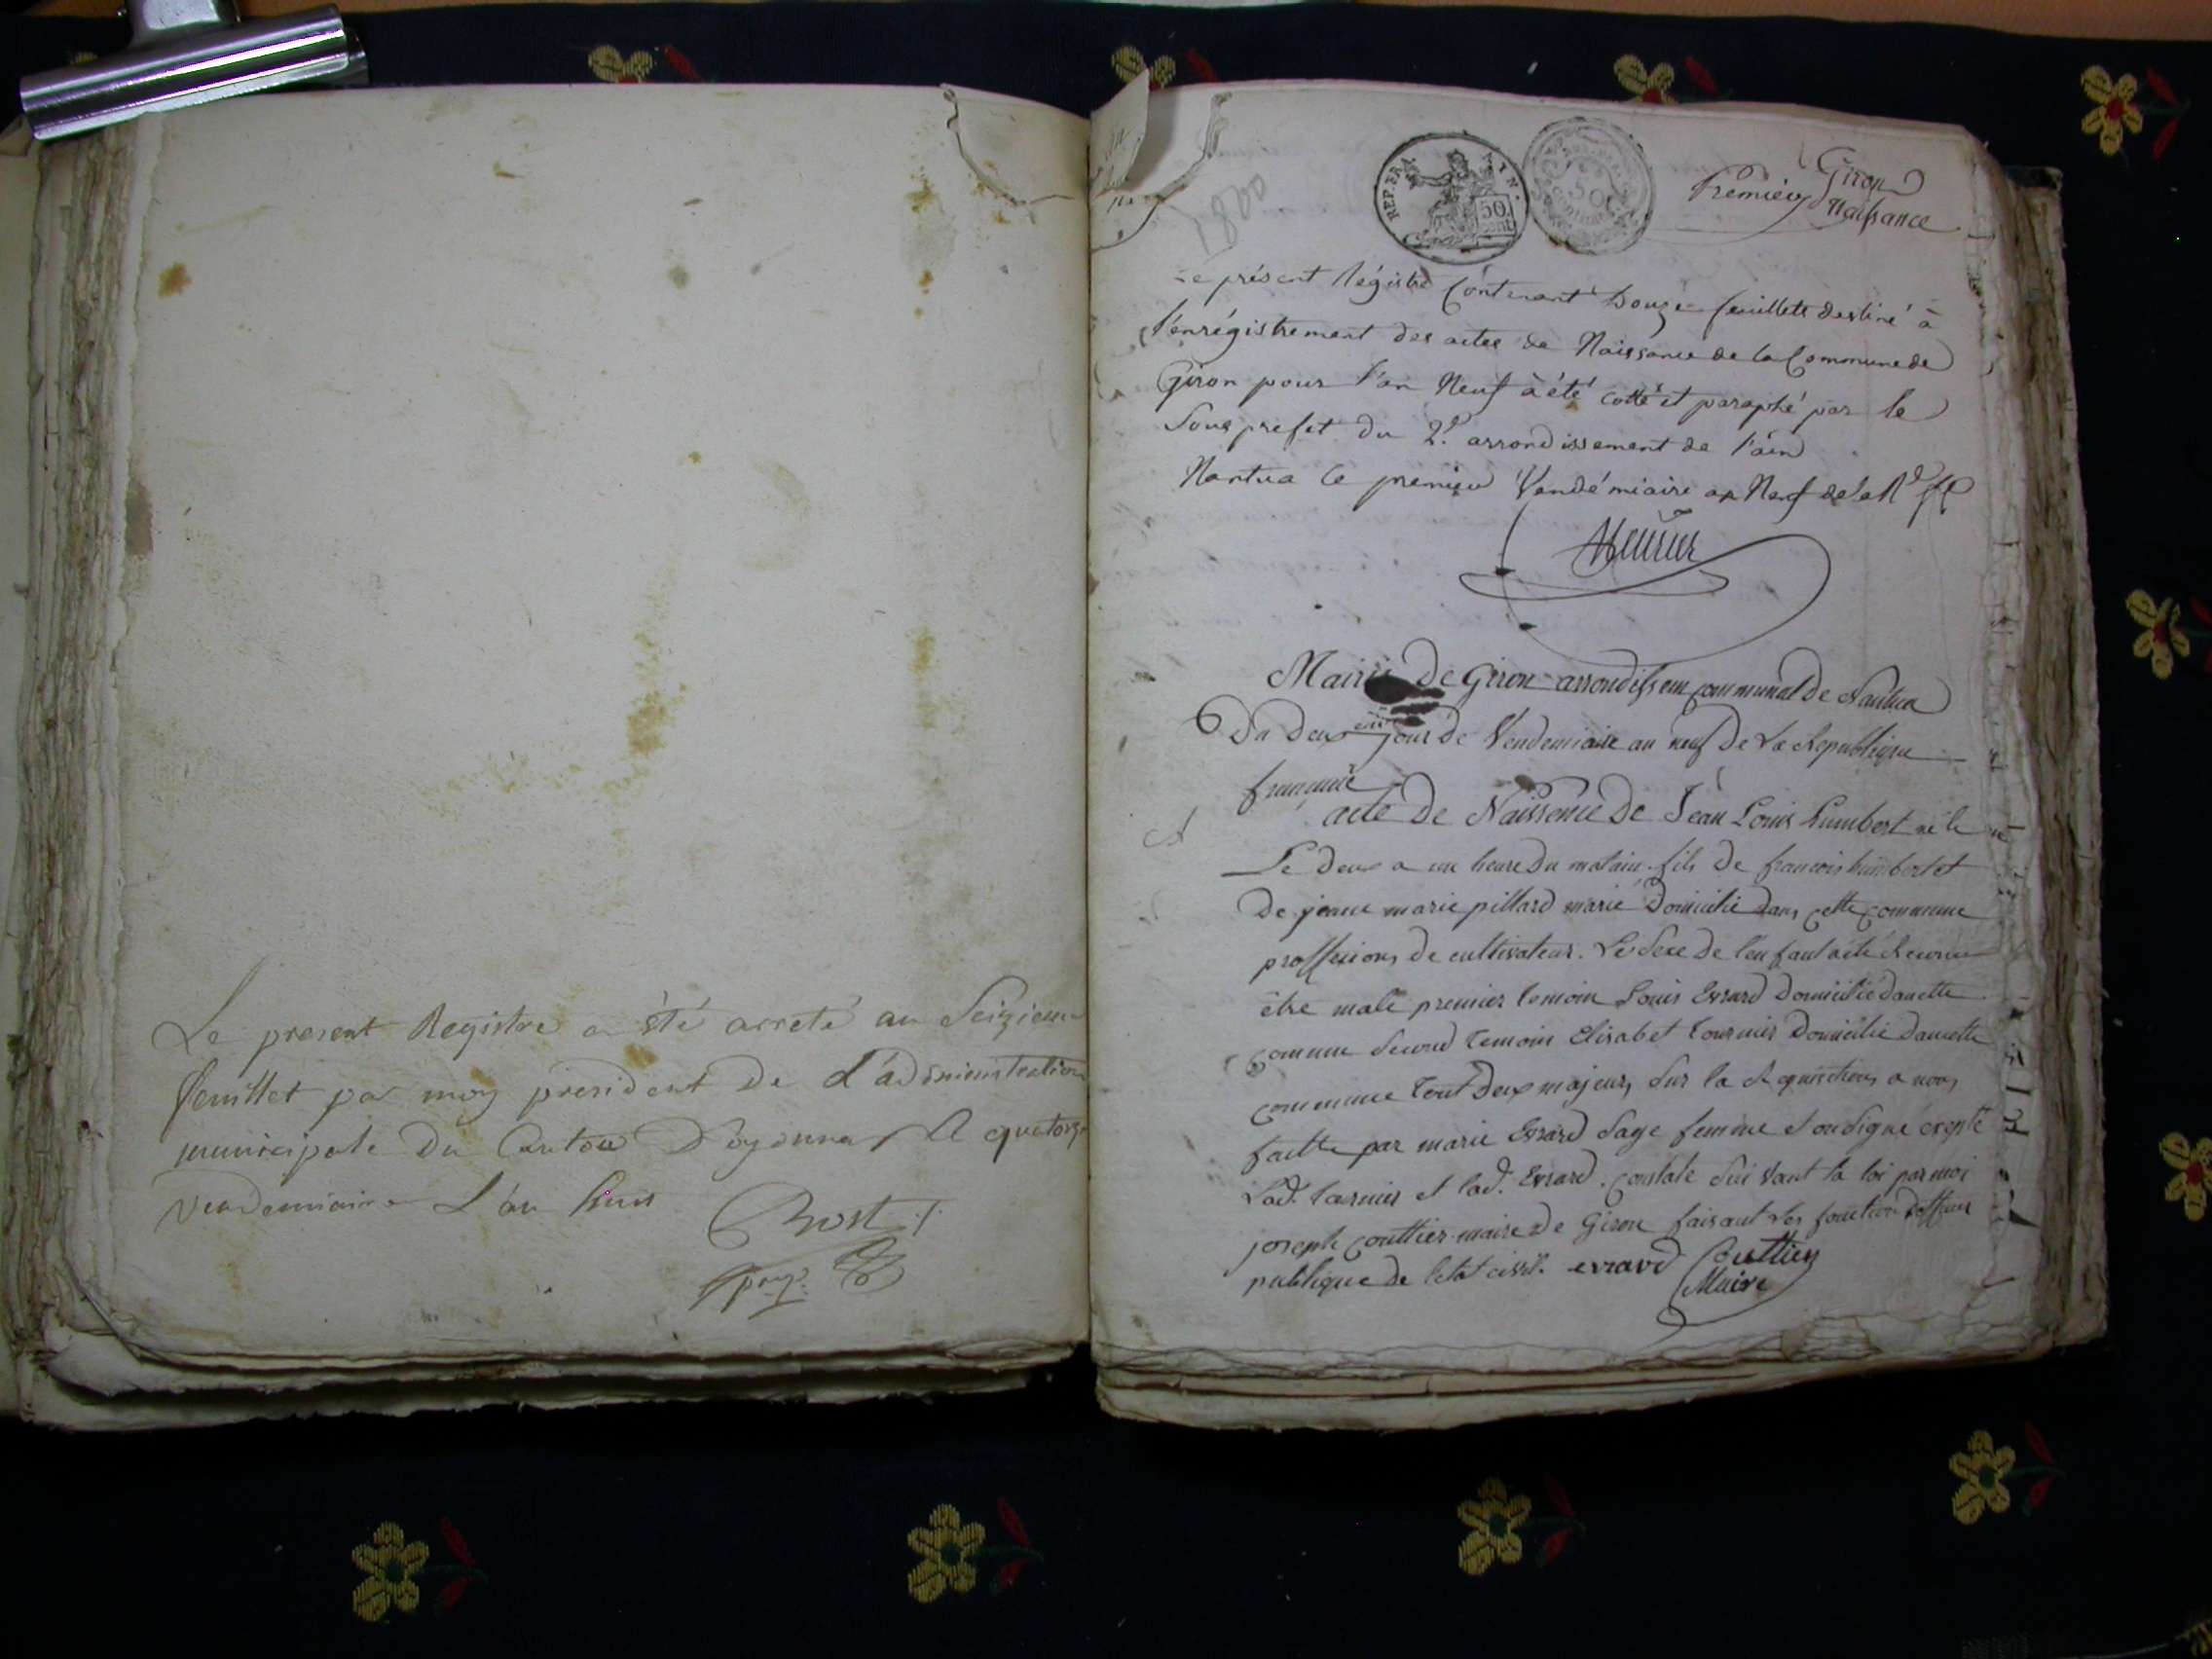 Le present Registre a été arreté au Seizieme
feuillet par moy president de L'administration
municipale du Canton D'oyonnax le quatorze
vendemiaire L'an huit
Bost
REP. FRA
50
cent
50
Giron
Premier
Naissance
Le présent Régistre Contenant douze feuillets destiné à
l'enrégistrement des actes de Naissance de la Commune de
Giron pour l'an Neuf à été cotté et paraphé par le
Sous prefet du 2.e arrondissement de l'ain
Nantua le premier Vendémiaire an Neuf de la R
Mairie de Giron arrondissem communal de Nantua
Du deux jour de Vendemiaire an neuf De La Republique
francaise
acte de Naissence de Jean Louis humbert né le
Le deux a un heure du matain. fils de francois humbert et
De jeanne marie pillard marié Domicilié dans cette commune
proffesions de cultivateur. Le Sexe de l'enfant a été Reconnu
être male premier temoin Louis Evrard Domicilié dancette
commune Second temoin Elisabet tournier Domicilié dancette
commune tout Deux majeurs Sur la Requisitions a nous
faitte par marie Evrard Sage femme Soudigné exepté
Lad. tournier et lad. Evrard. constaté Suivant la loi par moi
joseph gouttier maire de Giron faisant les fonction
publique de letat civil. evrard Couttier
Maire